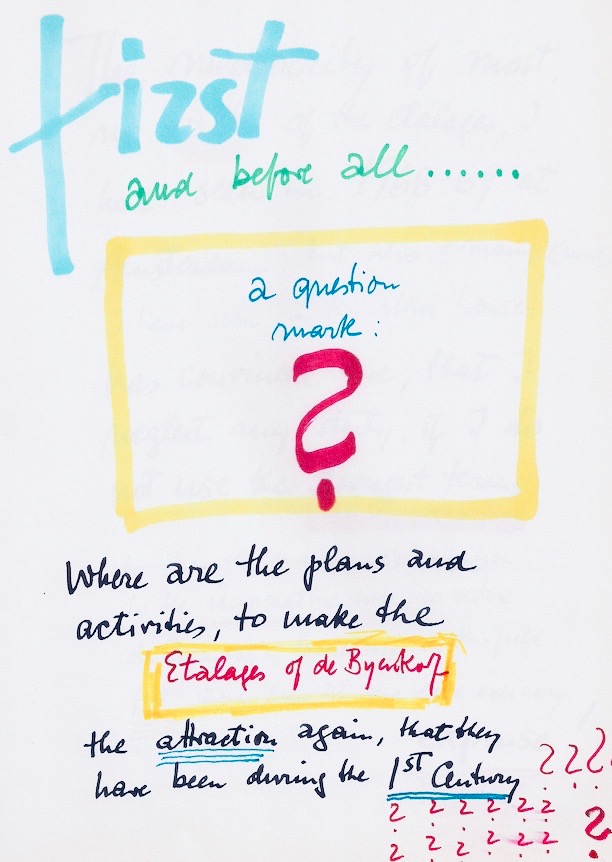 first
and before all......
a question
mark:
?
Where are the plans and
activities, to make the
Etalages of de Byenkorf
the attraction again, that they
have been during the 1ST Century
? ? ?
? ? ? ? ? ?
? ? ? ? ? ?